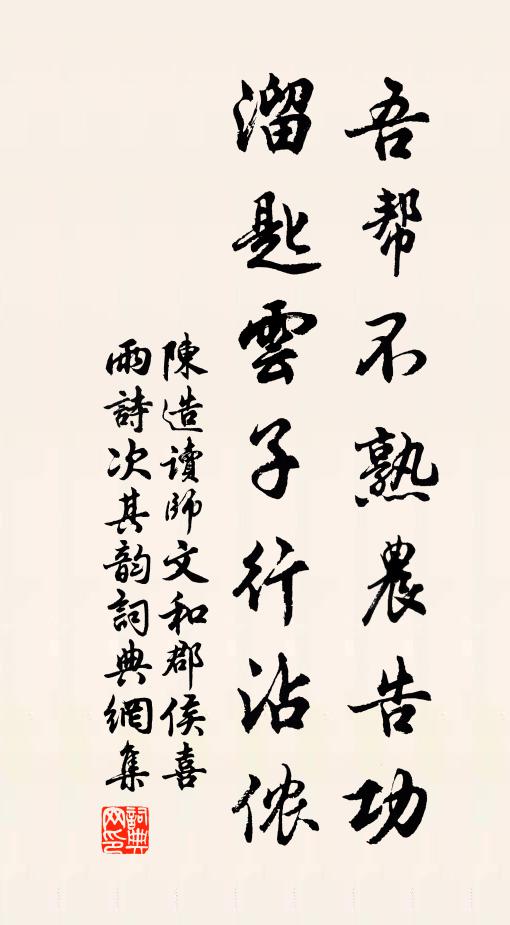 吾帮不熟農告功
溜匙雲子行沾侬
陳造讀師文和郡侯喜
雨詩次其韵詞典網集
詞典網印